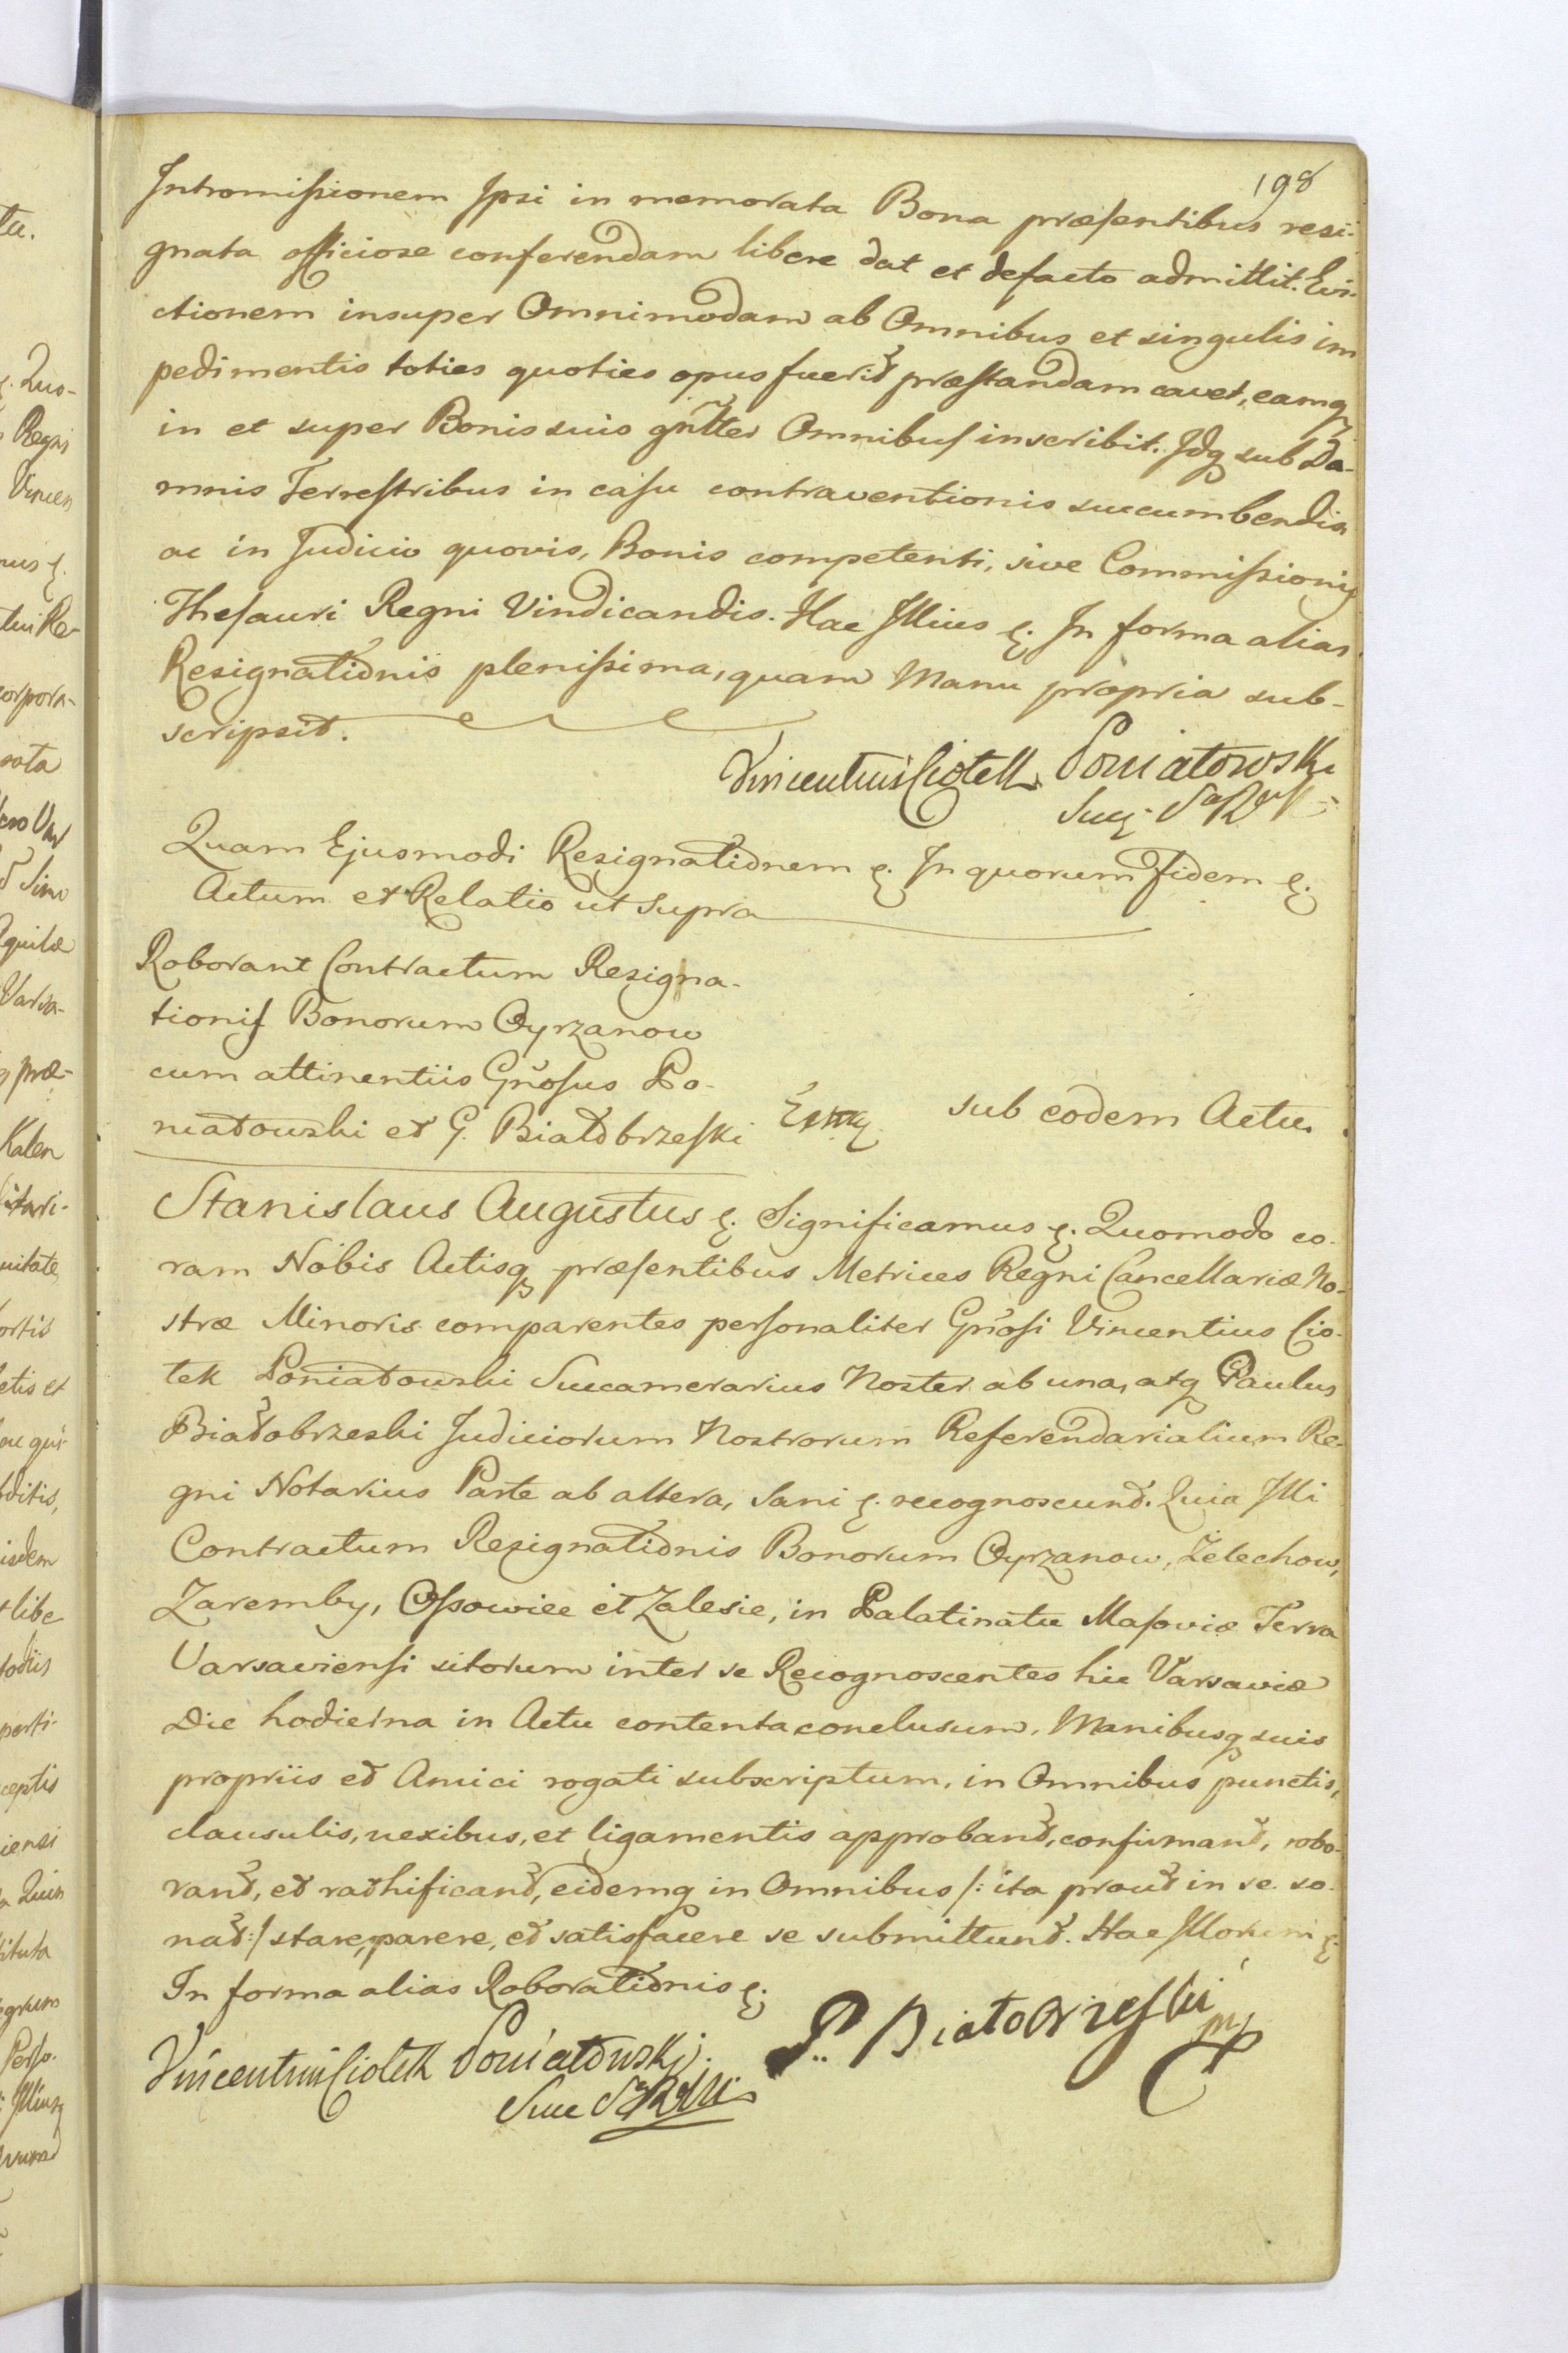 198
Intromissionem Ipsi in memorata Bona præsentibus resi-
gnata officiose conferendam libere dat et defacto admittit. Evi-
ctionem insuper Omnimodam ab Omnibus et singulis im
pedimentis toties quoties opus fuerit præstandam cavet, eamq
in et super Bonis suis gnlter Omnibus inscribit. Idq sub Da-
mnis Terrestribus in casu contraventionis succumbendis
ac in Judicio quovis, Bonis competenti, sive Commissionis
Thesauri Regni Vindicandis. Hac Illius &. In forma alias
Resignationis plenissima, quam Manu propria sub-
scripsit.
Vincentius Ciołek Poniatowski
Quam Ejusmodi Resignationem &. In quorum Fidem &.
Actum et Relatio ut supra
Roborant Contractum Resigna-
tionis Bonorum Oyrzanow
cum attinentiis Gñosus Po-
niatowski et G. Białobrzeski
sub eodem Actu.
Stanislaus Augustus &. Significamus &. Quomodo co-
ram Nobis Actisq præsentibus Metrices Regni Cancellariæ No-
stræ Minoris comparentes personaliter Gñosi Vincentius Cio-
tek Poniatowski Succamerarius Noster ab una, atq Paulus
Białobrzeski Judiciorum Nostrorum Referendarialium Re-
gni Notarius Parte ab altera, Sani &. recognoscunt. Quia Illi
Contractum Resignationis Bonorum Oyrzanow, Żelechow,
Zaremby, Ossowiec et Zalesie, in Palatinatu Masoviæ Terra
Varsaviensi sitorum inter se Recognoscentes hic Varsaviæ
Die hodierna in Actu contenta conclusum, Manibusq suis
propriis et Amici rogati subscriptum, in Omnibus punctis,
clausulis, nexibus, et ligamentis approbant, confirmant, robo-
rant, et rathificant, eidemq in Omnibus /: ita prout in se so-
nat :/ stare, parere, et satisfacere se submittunt. Hac Illorum &.
In forma alias Roborationis &.
Vincentius Ciołek Poniatowski
P. Białobrzeski mp